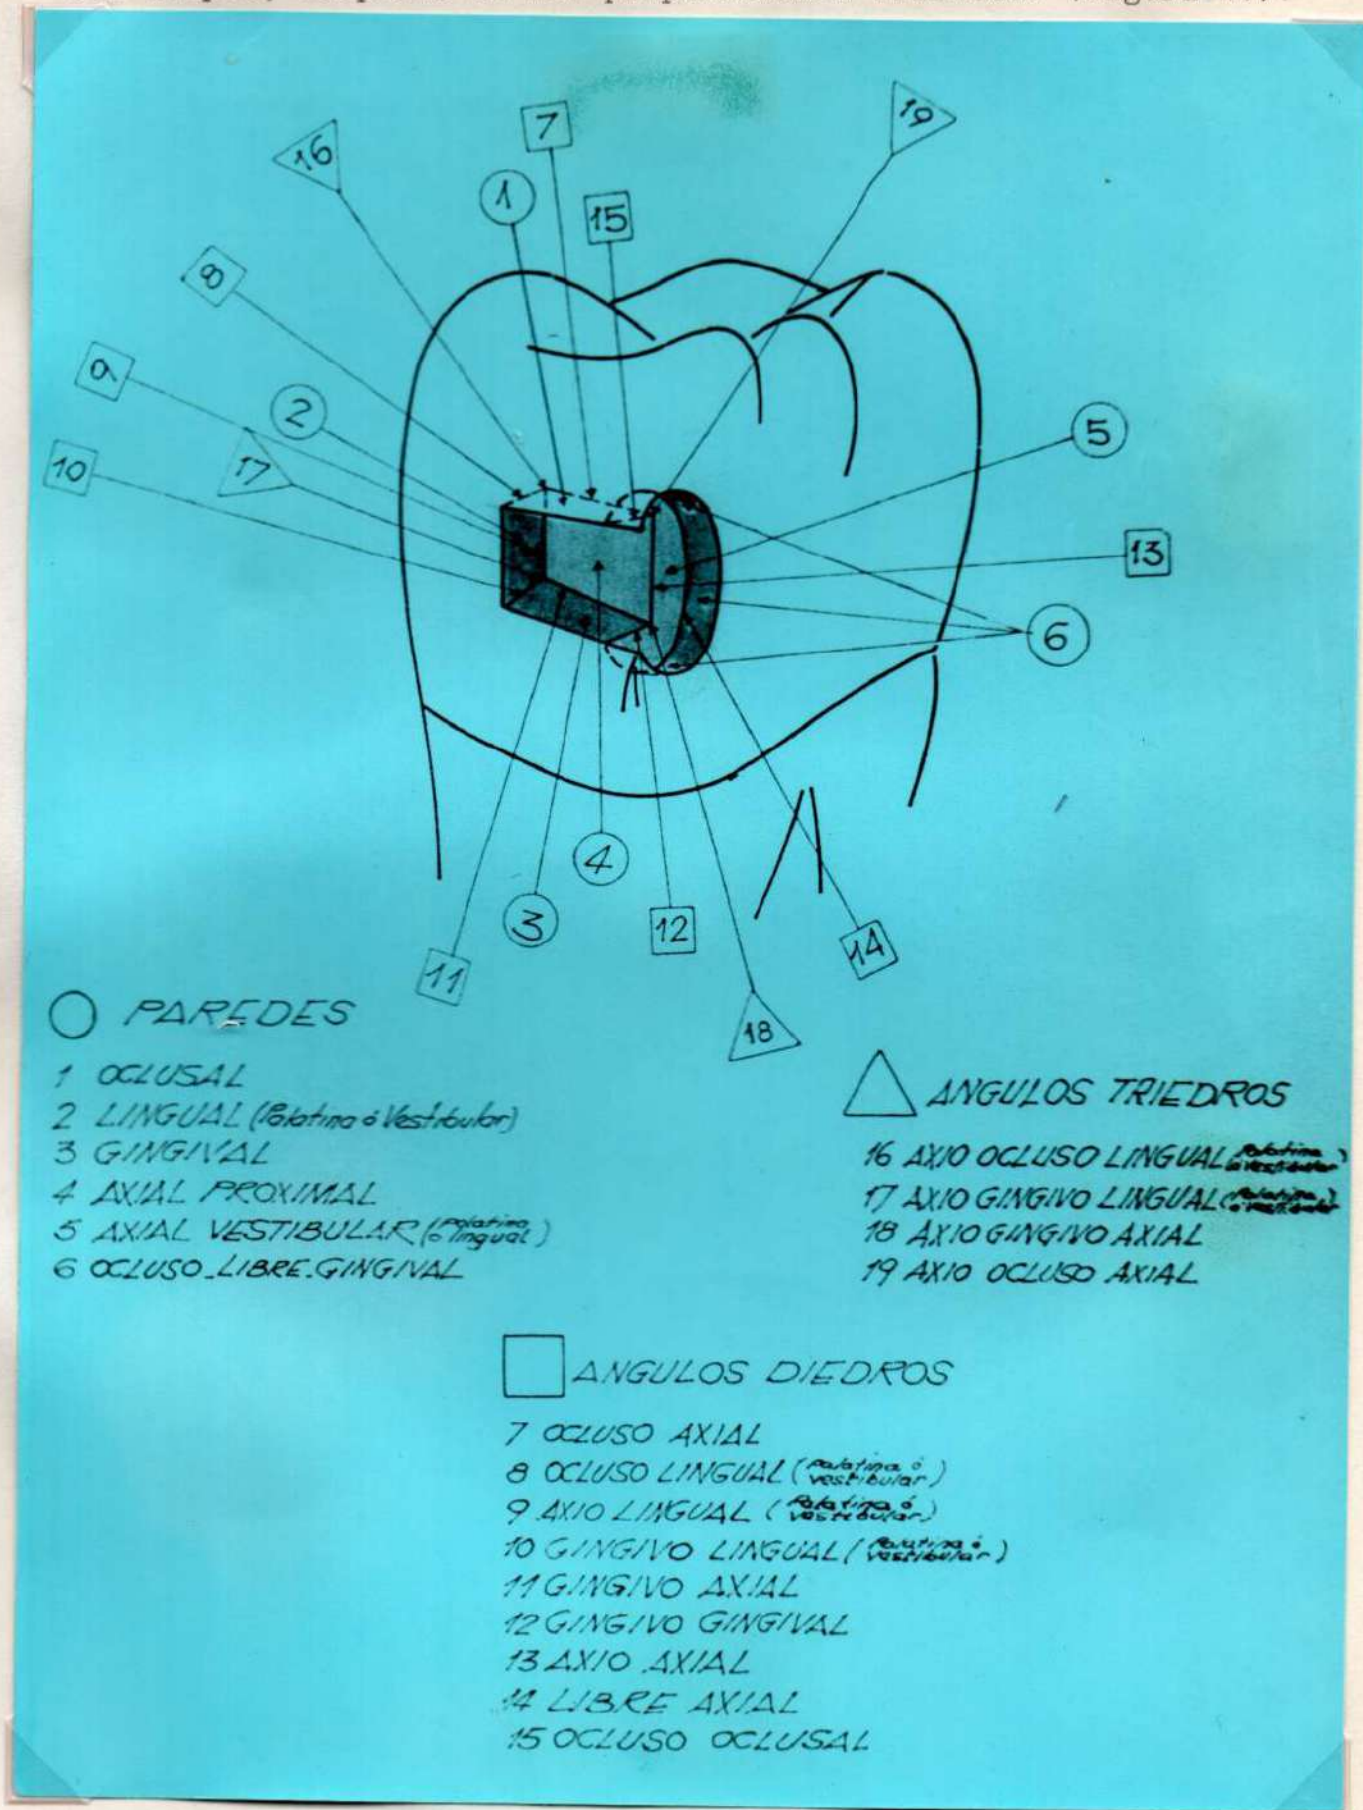 16
7
19
1
15
8
9
2
5
17
10
13
6
4
3
12
14
11
18
PAREDES
1 OCLUSAL
2 LINGUAL (Palatina ó Vestibular)
3 GINGIVAL
4 AXIAL PROXIMAL
5 AXIAL VESTIBULAR (Palatina o lingual)
6 OCLUSO-LIBRE-GINGIVAL
ANGULOS TRIEDROS
16 AXIO OCLUSO LINGUAL (Palatina o vestibular)
17 AXIO GINGIVO LINGUAL (Palatina o vestibular)
18 AXIO GINGIVO AXIAL
19 AXIO OCLUSO AXIAL
ANGULOS DIEDROS
7 OCLUSO AXIAL
8 OCLUSO LINGUAL (Palatina ó vestibular)
9 AXIO LINGUAL (Palatina ó vestibular)
10 GINGIVO LINGUAL (Palatina ó vestibular)
11 GINGIVO AXIAL
12 GINGIVO GINGIVAL
13 AXIO AXIAL
14 LIBRE AXIAL
15 OCLUSO OCLUSAL